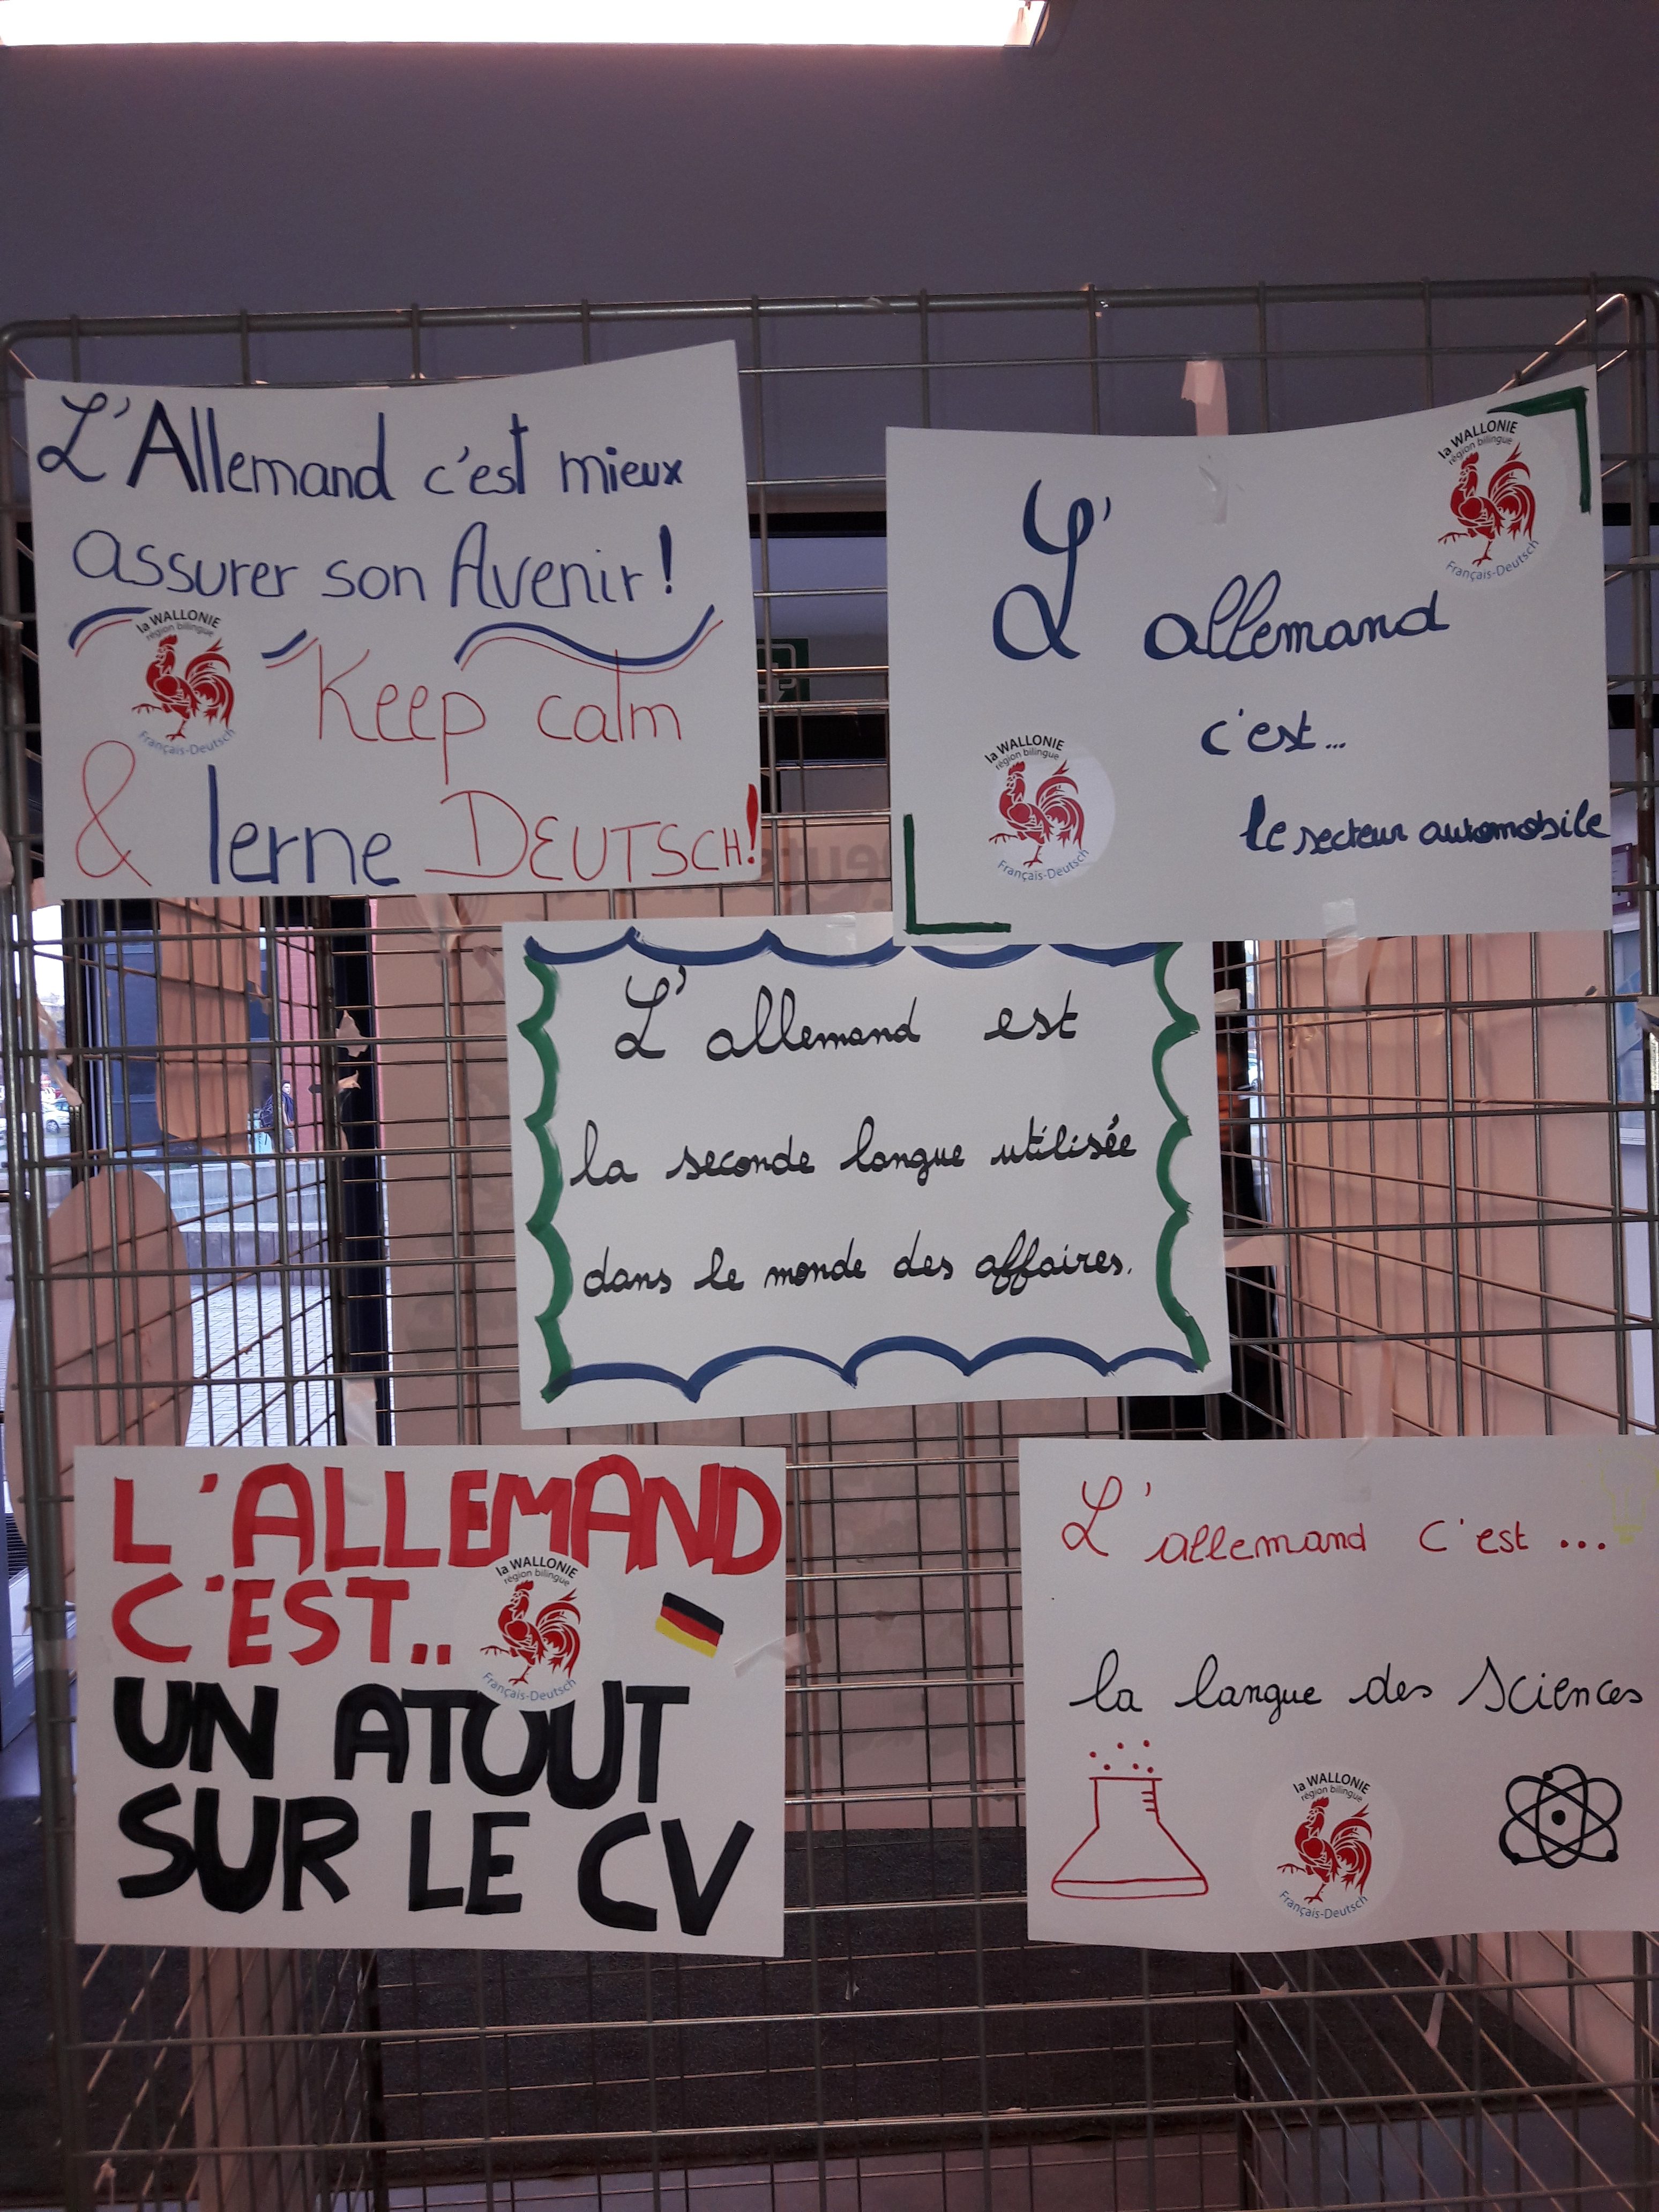 L'Allemand c'est mieux
assurer son Avenir!
la WALLONIE
région bilingue
Français-Deutsch
Keep calm
& lerne DEUTSCH!
la WALLONIE
région bilingue
Français-Deutsch
L'allemand
c'est...
le secteur automobile
la WALLONIE
région bilingue
Français-Deutsch
L'allemand est
la seconde langue utilisée
dans le monde des affaires.
L'ALLEMAND
C'EST..
la WALLONIE
région bilingue
Français-Deutsch
UN ATOUT
SUR LE CV
L'allemand c'est ...
la langue des sciences
la WALLONIE
région bilingue
Français-Deutsch